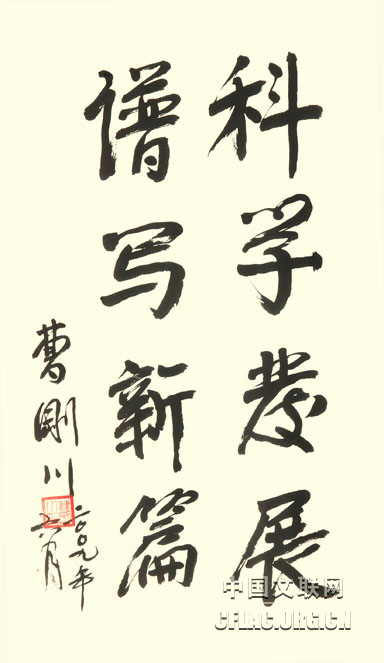 科学发展
谱写新篇
曹刚川
二〇〇九年
六月
中国文联网
CFLAC.ORG.CN